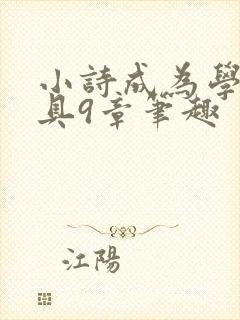 小詩成為學
具9章筆趣
江陽